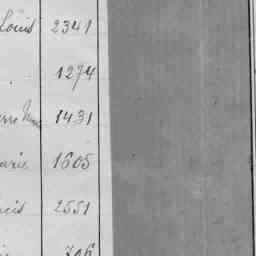 Louis 2341
1274
1431
arie 1605
cis 2551
706